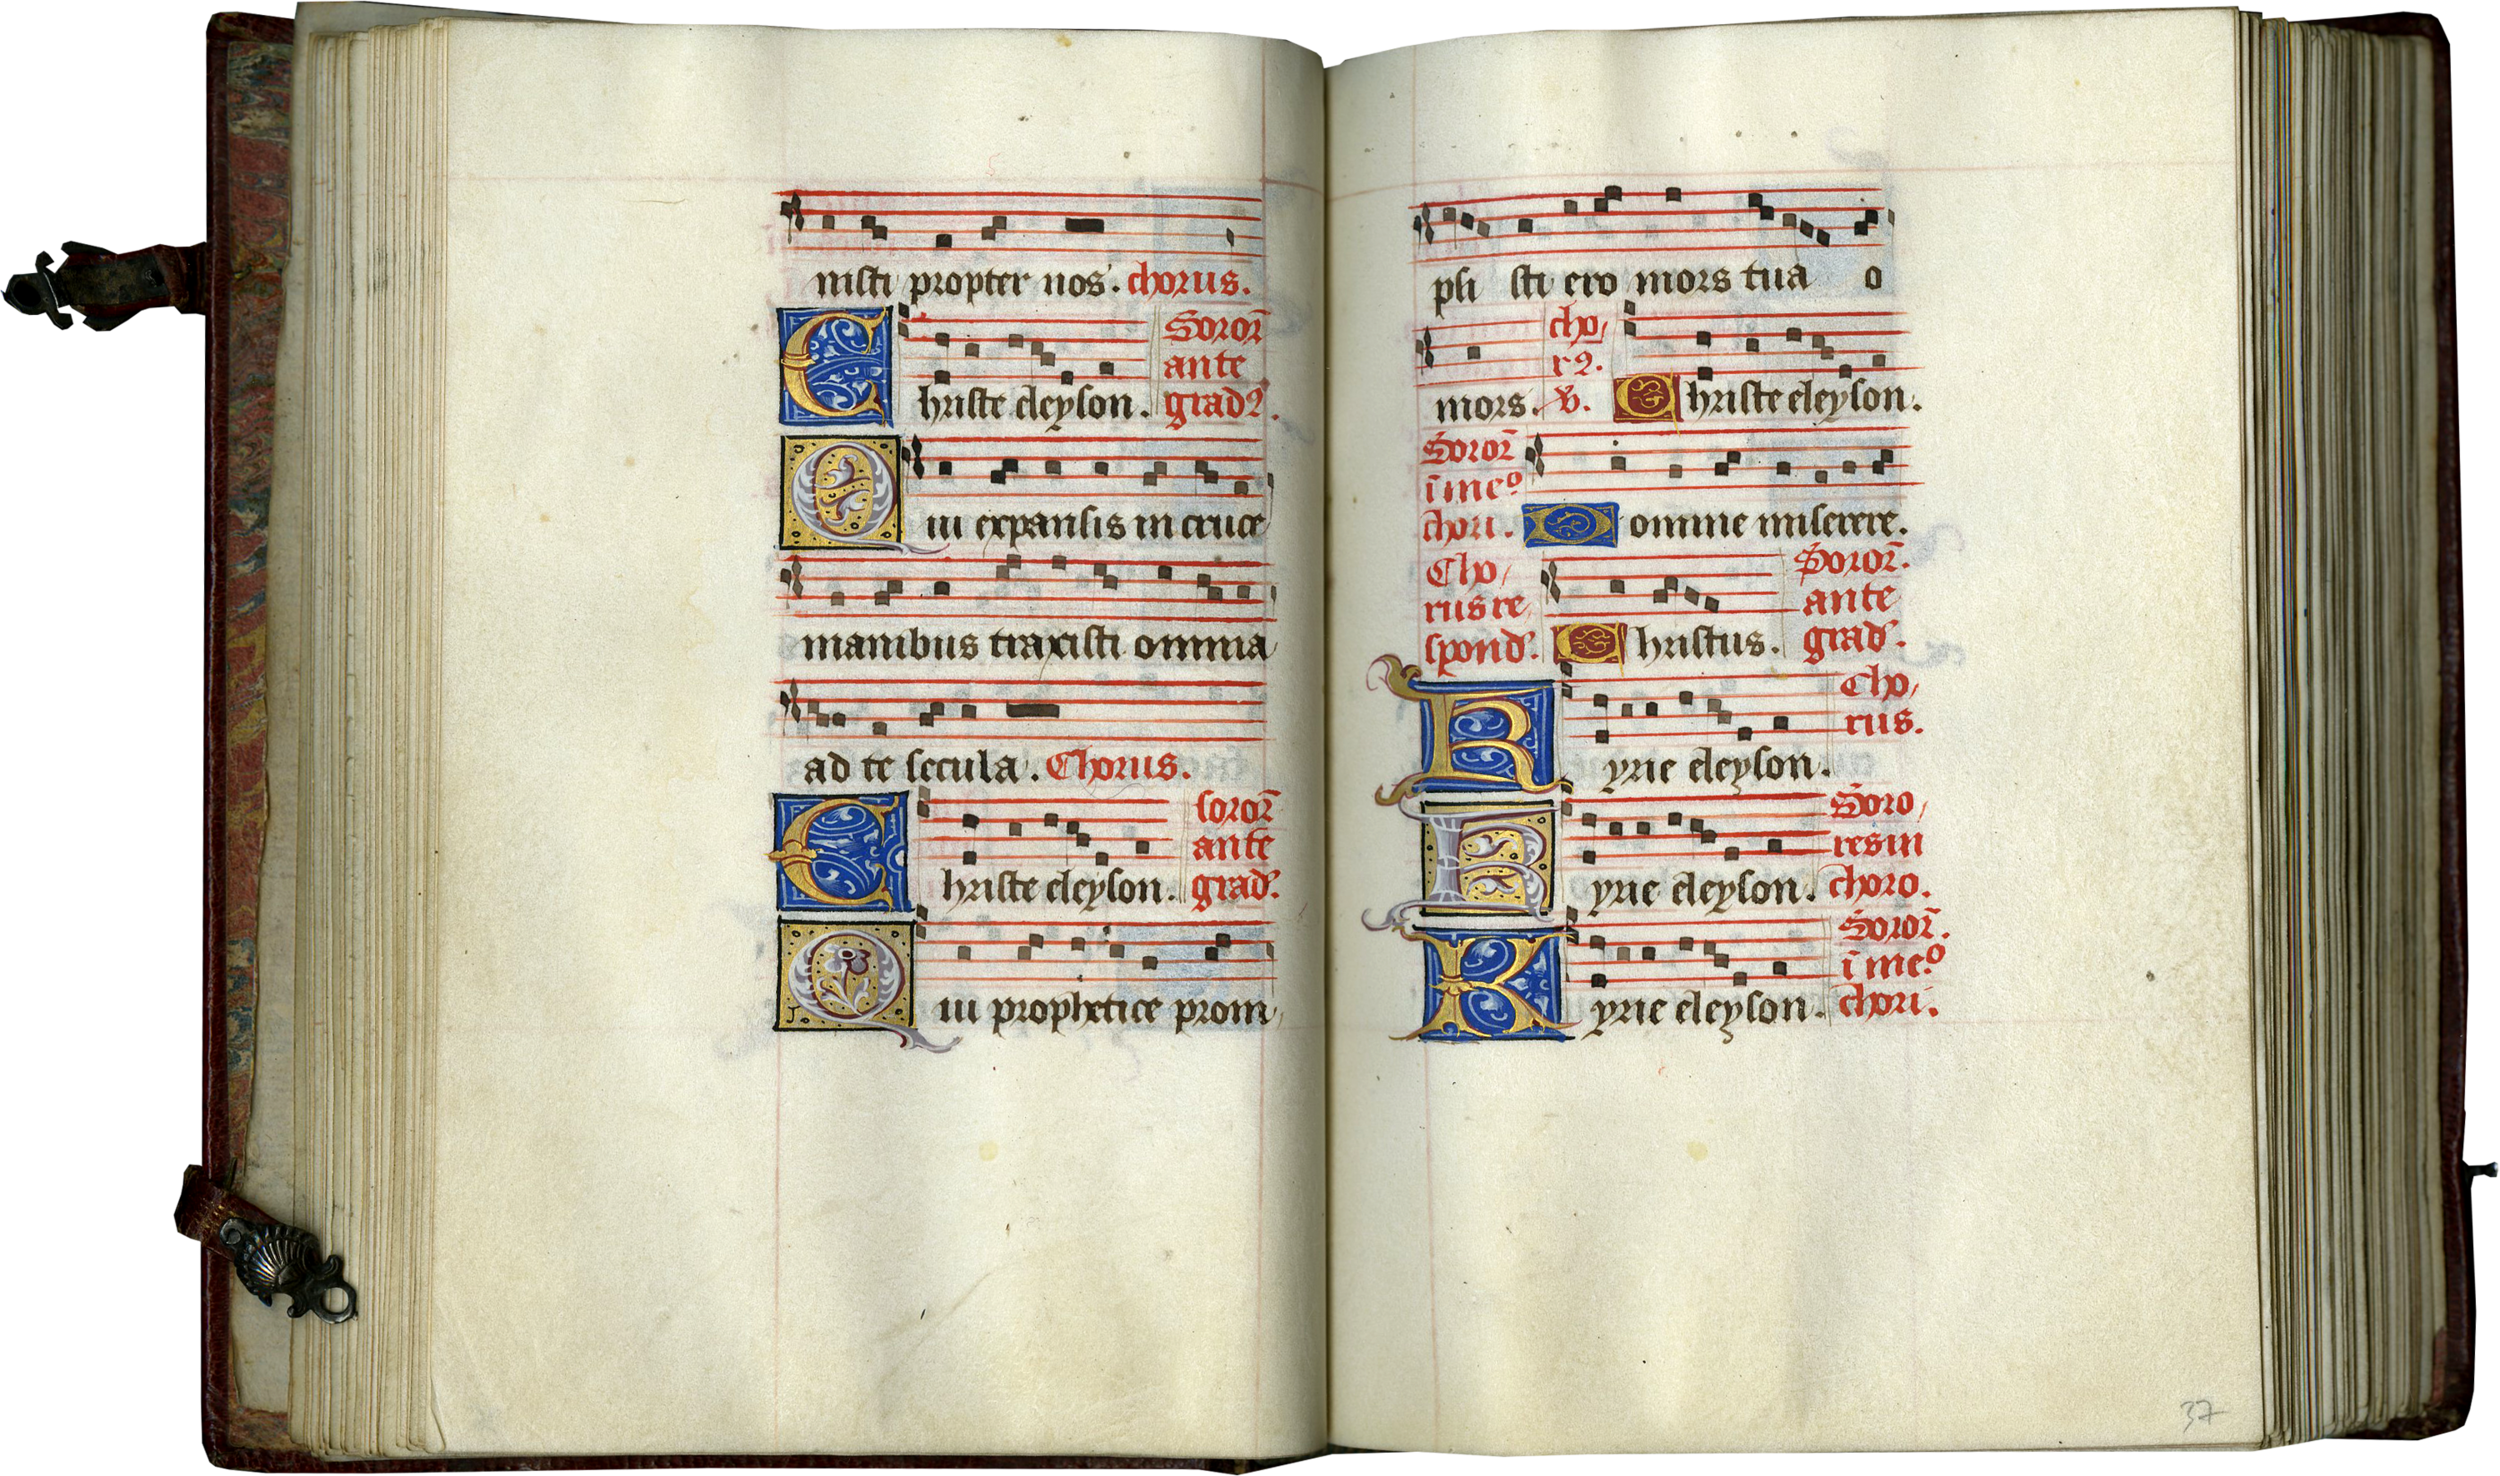 nisti propter nos. chorus.
Christe eleyson. Soror̄
ante
grad9.
Qui expansis in cruce
manibus traxisti omnia
ad te secula. Chorus.
Christe eleyson. soror̄
ante
grad᷒.
Qui prophetice prom
psi sti ero mors tua o
mors. cho/
r9.
v. Christe eleyson.
Soror̄
ī meº
chori. Domine miserere.
Cho/
rus re
spond᷒. Christus. Soror̄.
ante
grad᷒.
Kyrie eleyson. Cho/
rus.
Kyrie eleyson. Soro/
res in
choro.
Kyrie eleyson. Soror̄.
ī meº
chori.
37